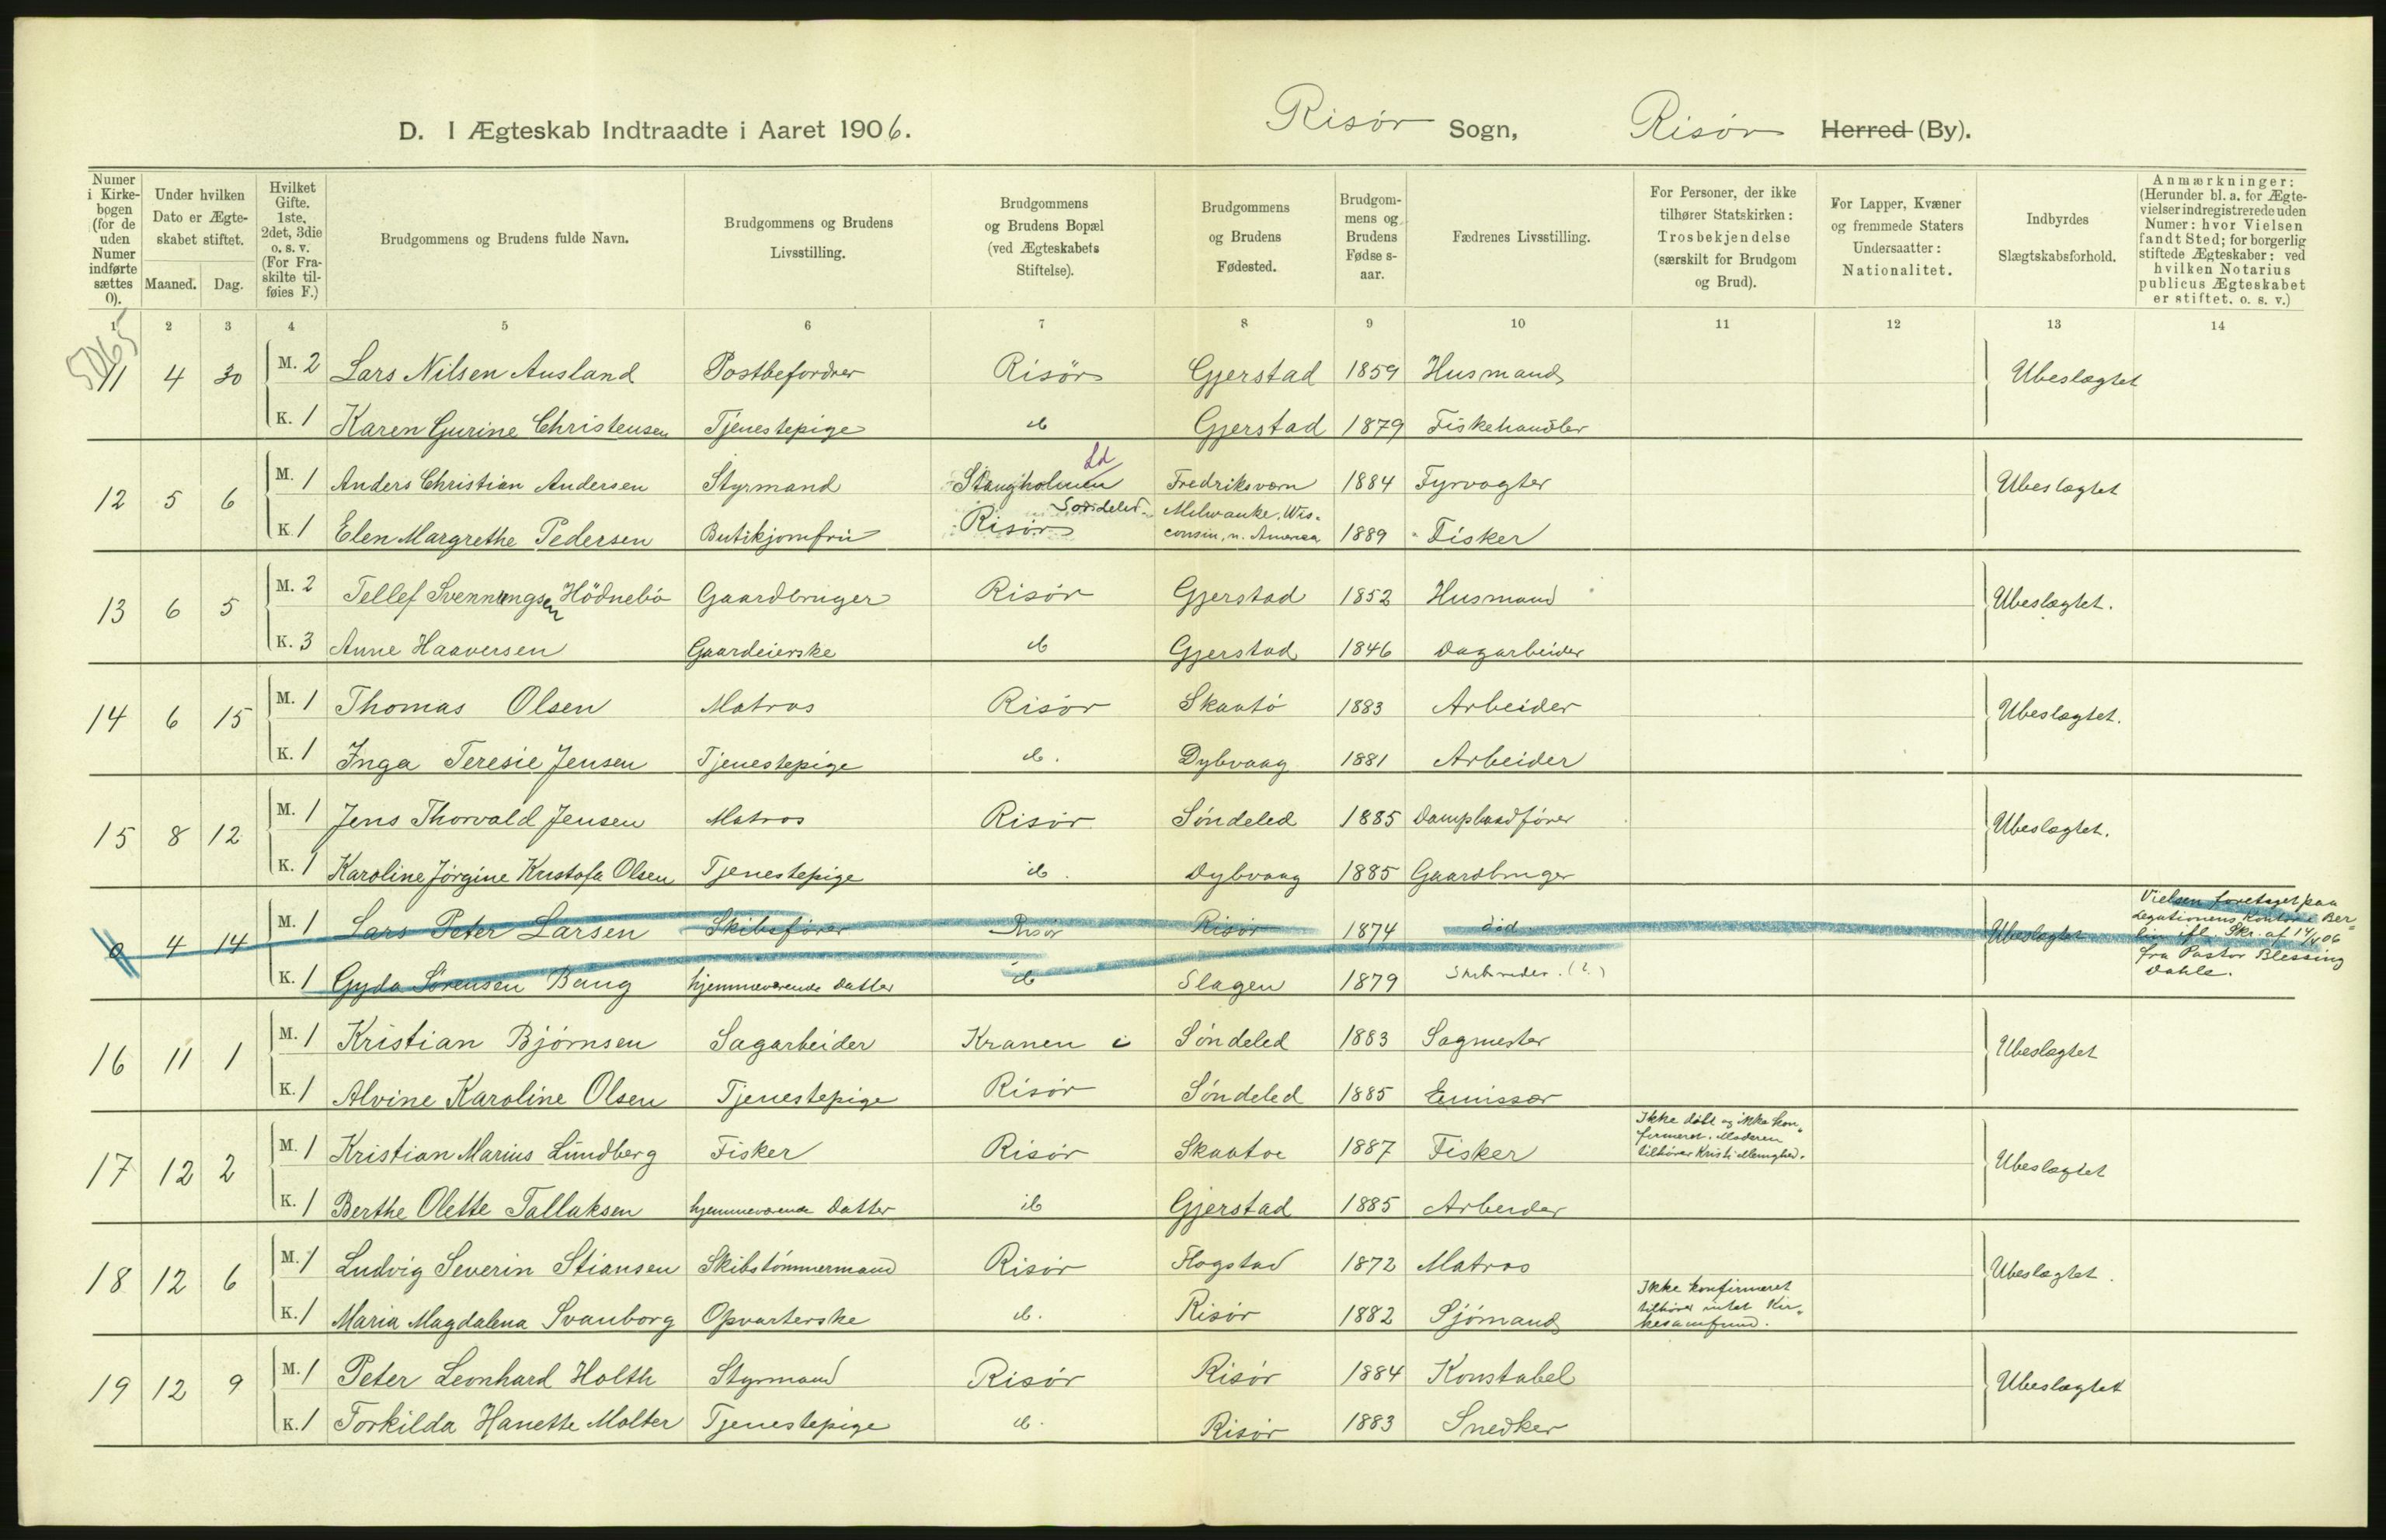 D. I Ægteskab Indtraadte i Aaret 1906. Risør Sogn, Risør Herred (By).
Numer i Kirkebogen (for de uden Numer indførte sættes 0).
Under hvilken Dato er Ægteskabet stiftet.
Maaned. Dag.
Hvilket Gifte. 1ste, 2det, 3die o. s. v. (For Fraskilte tilføies F.)
Brudgommens og Brudens fulde Navn.
Brudgommens og Brudens Livsstilling.
Brudgommens og Brudens Bopæl (ved Ægteskabets Stiftelse).
Brudgommens og Brudens Fødested.
Brudgommens og Brudens Fødselsaar.
Fædrenes Livsstilling.
For Personer, der ikke tilhører Statskirken: Trosbekjendelse (særskilt for Brudgom og Brud).
For Lapper, Kvæner og fremmede Staters Undersaatter: Nationalitet.
Indbyrdes Slægtskabsforhold.
Anmærkninger: (Herunder bl. a. for Ægtevielser indregistrerede uden Numer: hvor Vielsen fandt Sted; for borgerlig stiftede Ægteskaber: ved hvilken Notarius publicus Ægteskabet er stiftet. o. s. v.)
1 2 3 4 5 6 7 8 9 10 11 12 13 14
11 4 30 M. 2 Lars Nilsen Ausland Postbefordrer Risör Gjerstad 1859 Husmand Ubeslægtet
K. 1 Karen Gurine Christensen Tjenestepige ib Gjerstad 1879 Fiskehandler
Ld
12 5 6 M. 1 Anders Christian Andersen Styrmand Stangholmen Söndeled Fredriksværn 1884 Fyrvogter Ubeslægtet
K. 1 Elen Margrethe Pedersen Butikjomfru Risør Milwauke, Wisconsin, n. America 1889 Fisker
13 6 5 M. 2 Tellef Svenningsen Hödnebö Gaardbruger Risør Gjerstad 1852 Husmand Ubeslægtet.
K. 3 Anne Haaversen Gaardeierske ib Gjerstad 1846 Dagarbeider
14 6 15 M. 1 Thomas Olsen Matros Risør Skaatö 1883 Arbeider Ubeslægtet.
K. 1 Inga Teresie Jensen Tjenestepige ib. Dybvaag 1881 Arbeider
15 8 12 M. 1 Jens Thorvald Jensen Matros Risør Søndeled 1885 Dampbaadfører Ubeslægtet.
K. 1 Karoline Jørgine Kristofa Olsen Tjenestepige ib. Dybvaag 1885 Gaardbruger
0 4 14 M. 1 Lars Peter Larsen Skibsfører Risør Risør 1874 Ubeslægtet Vielsen foretaget paa Legationens Kontor i Berlin ifl. Skr. af 14/4 06 fra Pastor Blessing Dahle.
K. 1 Gyda Sørensen Bang hjemmeværende Datter ib Slagen 1879 Skibsreder. (?)
16 11 1 M. 1 Kristian Bjørnsen Sagarbeider Kranen i Søndeled 1883 Sagmester Ubeslægtet
K. 1 Alvine Karoline Olsen Tjenestepige Risør Søndeled 1885 Emissær
17 12 2 M. 1 Kristian Marius Lundberg Fisker Risør Skaatøe 1887 Fisker Ikke døbt og ikke konfirmeret. Moderen tilhører Kristi Menighed. Ubeslægtet
K. 1 Berthe Olette Tallaksen hjemmeværende Datter ib Gjerstad 1885 Arbeider
18 12 6 M. 1 Ludvig Severin Stiansen Skibstømmermand Risør Flogstad 1872 Matros Ubeslægtet.
K. 1 Maria Magdalena Svanborg Opvarterske ib. Risør 1882 Sjømand Ikke konfirmeret tilhører intet Kirkesamfund.
19 12 9 M. 1 Peter Leonhard Holth Styrmand Risør Risør 1884 Konstabel Ubeslægtet
K. 1 Torkilda Hanette Molter Tjenestepige ib. Risør 1883 Snedker